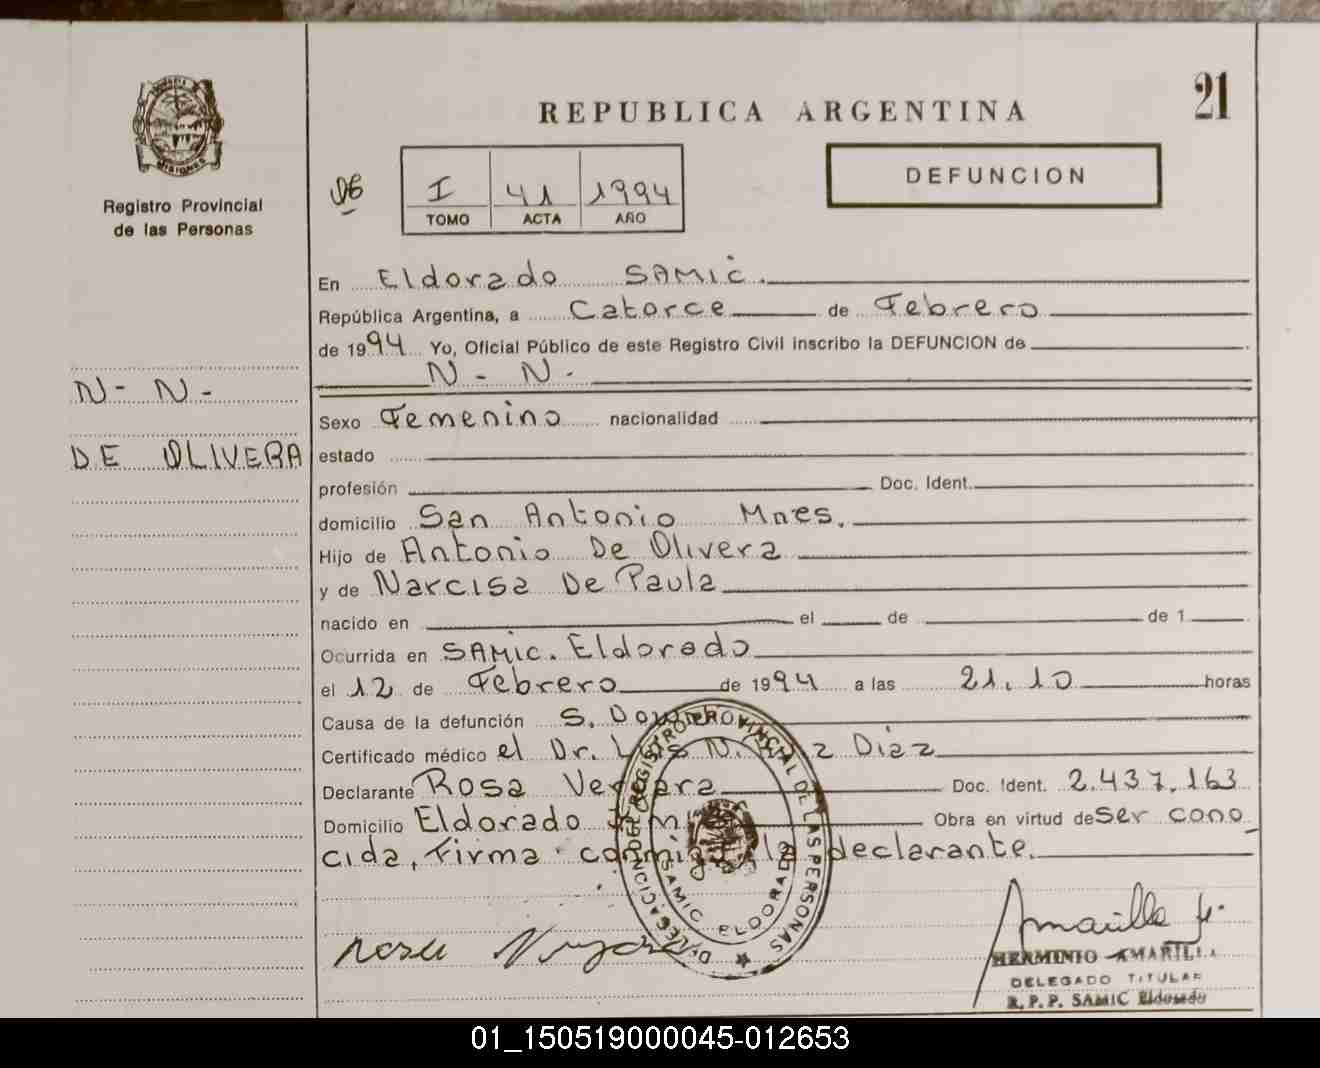 21
REPUBLICA ARGENTINA
DEFUNCION
MISIONES
Registro Provincial
de las Personas
I 41 1994
TOMO ACTA AÑO
En Eldorado SAMIC.
República Argentina, a Catorce de Febrero
de 1994 Yo, Oficial Público de este Registro Civil inscribo la DEFUNCION de
N - N -
N - N -
DE OLIVERA
Sexo Femenino nacionalidad
estado
profesión Doc. Ident.
domicilio San Antonio Mnes.
Hijo de Antonio De Olivera
y de Narcisa De Paula
nacido en el de de 1
Ocurrida en SAMIC. Eldorado
el 12 de Febrero de 1994 a las 21.10 horas
Causa de la defunción S.
Certificado médico el Dr. Luis N. Diaz
Declarante Rosa Vergara Doc. Ident. 2.437.163
Domicilio Eldorado Obra en virtud de Ser cono_
cida, Firma conmigo la declarante.
DELEGACION DEL REGISTRO PROVINCIAL DE LAS PERSONAS
SAMIC ELDORADO
Rosa Vergara
Amarilla
HERMINIO AMARILLA
DELEGADO TITULAR
R.P.P. SAMIC Eldorado
01_150519000045-012653